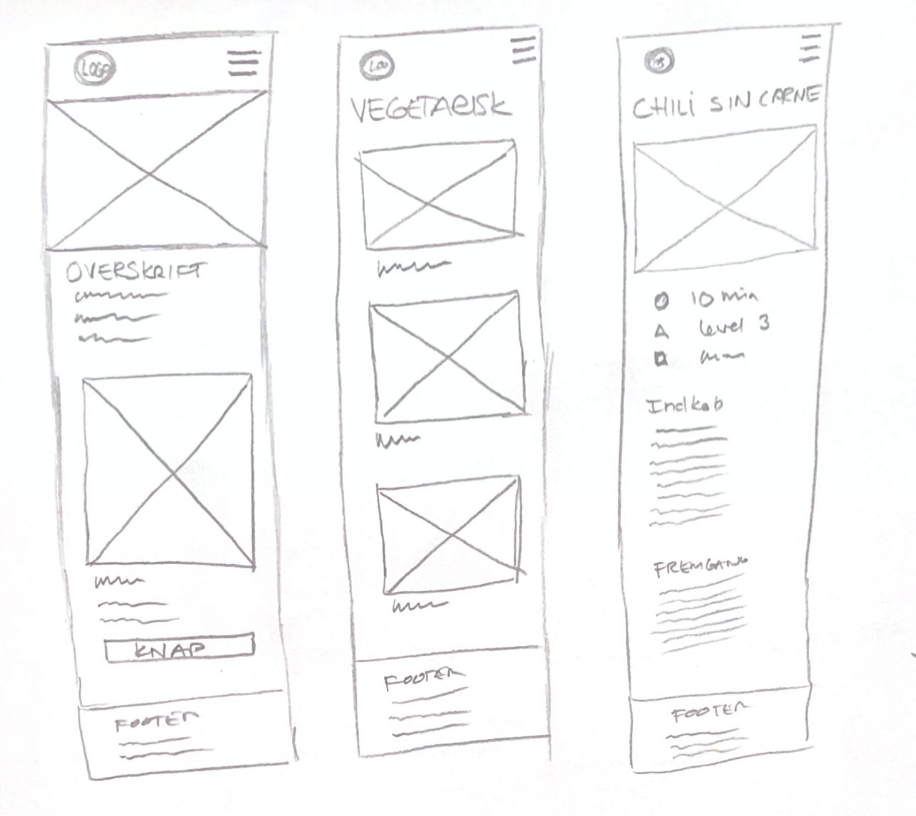 LOGO
OVERSKRIFT
KNAP
FOOTER
VEGETARISK
FOOTER
CHILI SIN CARNE
10 min
level 3
Indkøb
FREMGANG
FOOTER